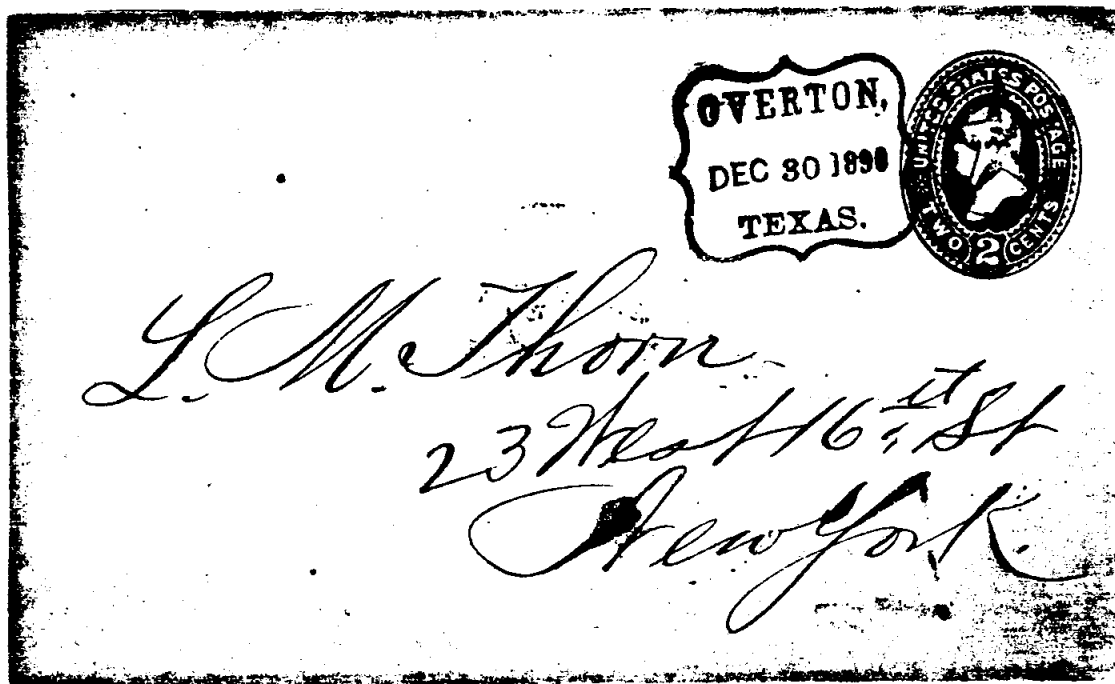 OVERTON,
DEC 30 1898
TEXAS.
UNITED STATES POSTAGE
TWO 2 CENTS
L. M. Thorn
23 West 16st St
New York.